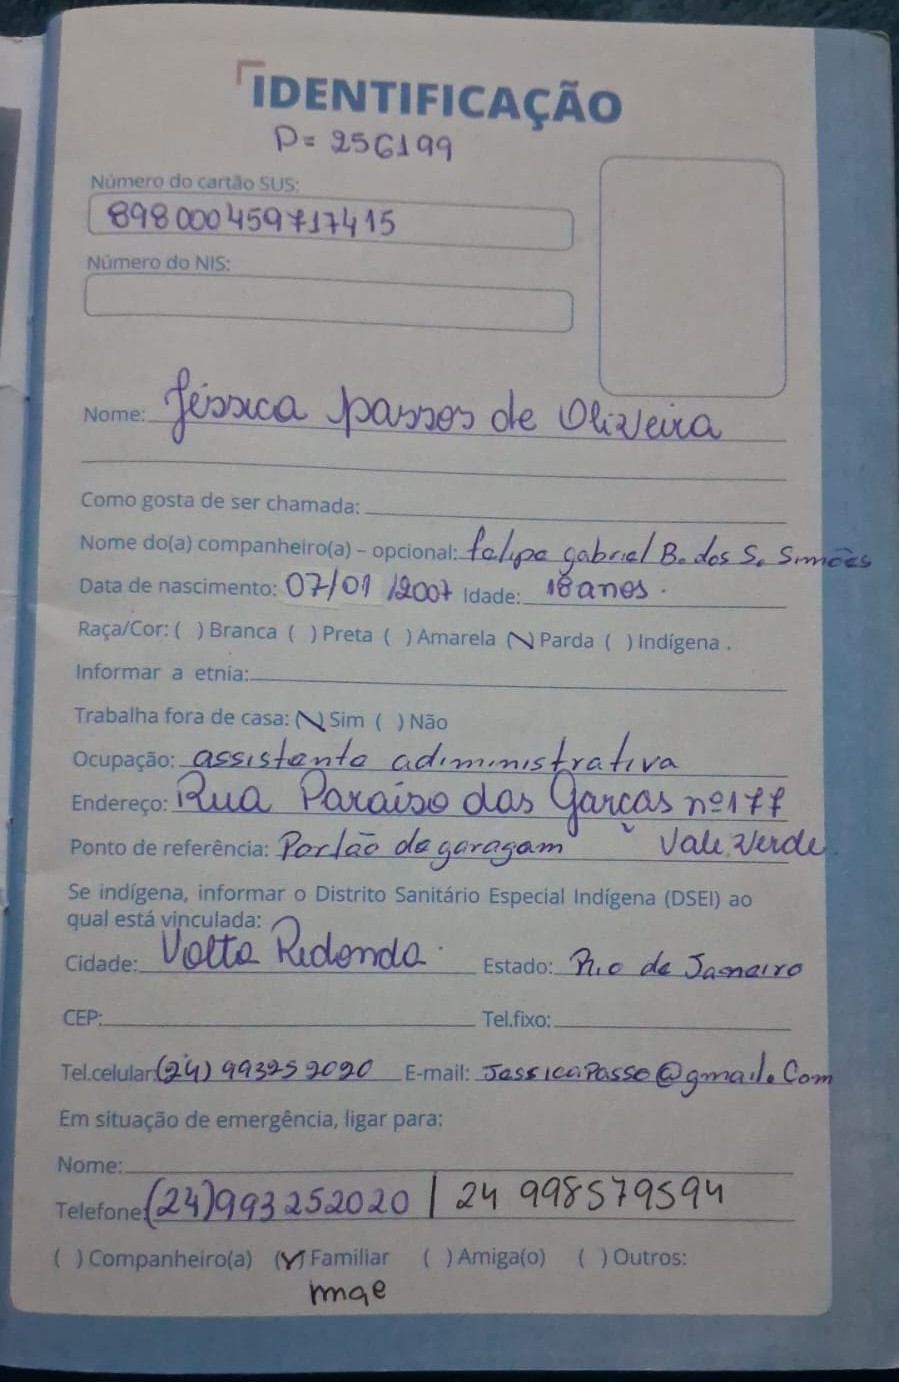 IDENTIFICAÇÃO
P= 256199
Número do cartão SUS:
898 000 459 717415
Número do NIS:
Nome: Jéssica passos de Oliveira
Como gosta de ser chamada:
Nome do(a) companheiro(a) – opcional: felipe gabriel B. dos S. Simões
Data de nascimento: 07/01/2007 Idade: 18 anos.
Raça/Cor: ( ) Branca ( ) Preta ( ) Amarela (\) Parda ( ) Indígena .
Informar a etnia:
Trabalha fora de casa: (\) Sim ( ) Não
Ocupação: assistente adiministrativa
Endereço: Rua Paraíso das Garças nº177
Ponto de referência: Portão da garagem Vale Verde.
Se indígena, informar o Distrito Sanitário Especial Indígena (DSEI) ao
qual está vinculada:
Cidade: Volta Redonda Estado: Rio de Janeiro
CEP: Tel.fixo:
Tel.celular: (24) 993252020 E-mail: JessicaPasso@gmail.Com
Em situação de emergência, ligar para:
Nome:
Telefone: (24)993252020 | 24 998579594
( ) Companheiro(a) (Y) Familiar ( ) Amiga(o) ( ) Outros:
mãe